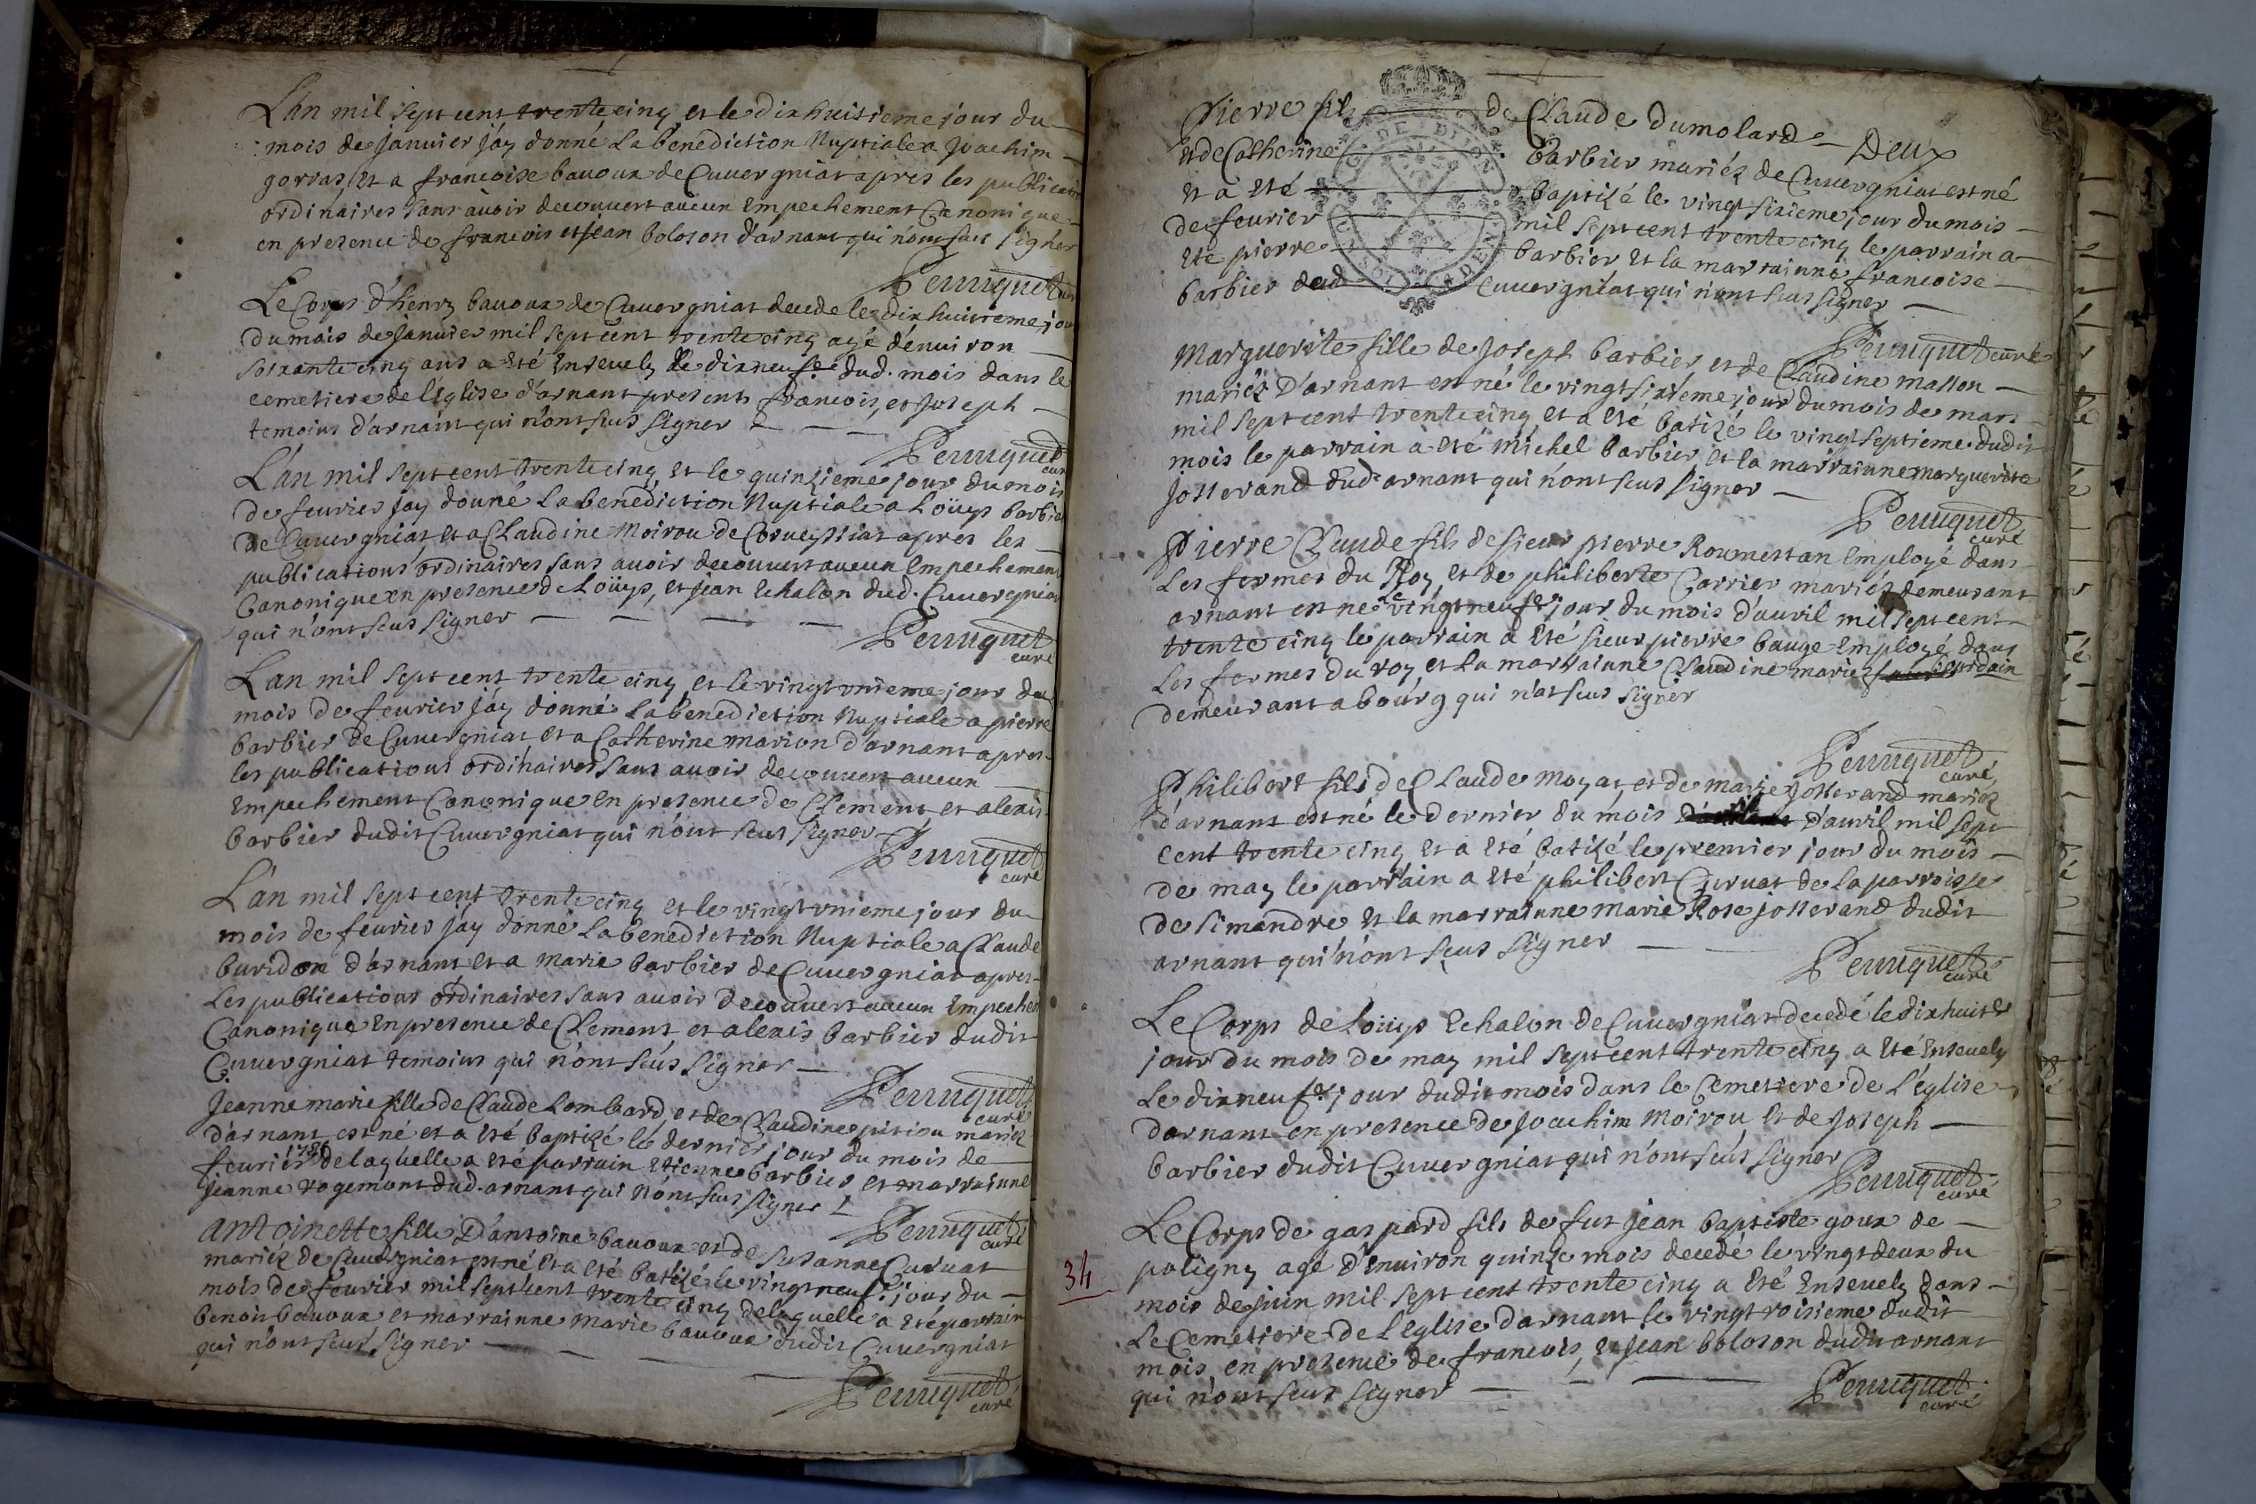 L'an mil sept cent trente cinq et le dixhuitieme jour du
mois de Januier j'ay donné la benediction Nuptiale a Joachim
gorras et a francoise bauoux de Cuuergniat apres les publications
ordinaires sans auoir decouuert aucun Empechement Canonique
en presence de francois et jean boloson d'arnant qui n'ont sceus signer
Perruquet curé
Le Corps d'henry bauoux de Cuuergniat decede le dixhuitieme jour
du mois de Januier mil sept cent trente cinq agé d'enuiron
soixante cinq ans a eté Enseuely le dixneufe. dud. mois dans le
cemetiere de l'Eglise d'arnant presents francois, et Joseph
temoins d'arnant qui n'ont sceus signer
Perruquet
curé
L'an mil sept cent trente cinq et le quinzieme jour du mois
de feurier j'ay donné la benediction Nuptiale a Loüys barbier
de Cuuergniat et a Claudine Moirou de Corueyssiat apres les
publications ordinaires sans auoir decouuert aucun Empechement
Canonique en presence de Loüys, et jean Echalon dud. Cuuergniat
qui n'ont sceus signer
Perruquet
curé
L'an mil sept cent trente cinq et le vingt vnieme jour du
mois de feurier j'ay donné la benediction Nuptiale a pierre
barbier de Cuuergniat et a Catherine marion d'arnant apres
les publications ordinaires sans auoir decouuert aucun
Empechement Canonique en presence de Clement, et alexis
barbier dudit Cuuergniat qui n'ont sceus signer
Perruquet
curé
L'an mil sept cent trente cinq et le vingt vnieme jour du
mois de feurier j'ay donné la benediction Nuptiale a Claude
buridon d'arnant et a marie barbier de Cuuergniat apres
Les publications ordinaires sans auoir decouuert aucun Empechement
Canonique En presence de Clement, et alexis barbier dudit
Cuuergniat temoins qui n'ont sceus signer
Perruquet
curé
Jeanne marie fille de Claude Lombard, et de Claudine pition mariez
d'arnant est né et a eté baptizé le dernier jour du mois de
feurier 1735 de laquelle a eté parrain Etienne barbier et marrainne
Jeanne rogemont dud. arnant qui n'ont sceus signer
Perruquet
curé
Antoinette fille D'antoine bauoux et de Susanne Curuat
mariez de Cuuergniat est né et a eté batizé le vingt neufe. jour du
mois de feurier mil sept cent trente cinq de laquelle a eté parrain
benoit bauoux et marrainne marie bauoux dudit Cuuergniat
qui n'ont sceus signer
Perruquet
curé
Pierre fils de Claude dumolard Deux
et de Catherine barbier mariéz de Cuuergniat est né
et a eté baptizé le vingt sixieme jour du mois
de feurier mil sept cent trente cinq le parrain a
eté pierre barbier et la marrainne francoise
barbier dud Cuuergniat qui n'ont sceus signer
Perruquet curé
Marguerite fille de Joseph barbier, et de Claudine masson
mariéz D'arnant est né le vingt sixieme jour du mois de mars
mil sept cent trente cinq et a eté batizé le vingt septieme dudit
mois le parrain a eté michel barbier et la marrainne marguerite
Josserand dud. arnant qui n'ont sceus signer
Perruquet
curé
Pierre Claude fils de sieur pierre Roumestan Employé dans
Les fermes du Roy et de philiberte Carrier mariés demeurant
arnant est né le vingt neufe. jour du mois d'auril mil sept cent
trente cinq le parrain a eté sieur pierre bauge Employé dans
Les fermes du roy et la marrainne Claudine marie Jourdain
demeurant a bourg qui n'at sceus signer
Perruquet
curé
Philibert fils de Claude moyat et de marie Josserand mariez
d'arnant est né le dernier du mois d'auril mil sept
cent trente cinq et a eté batizé le premier jour du mois
de may le parrain a eté philibert Curuat de la parroisse
de simandre et la marrainne marie Rose josserand dudit
arnant qui n'ont sceus signer
Perruquet
curé
Le Corps de Loüys Echalon de Cuuergniat decedé le dixhuite.
jour du mois de may mil sept cent trente cinq a eté Enseuely
Le dixneufe. jour dudit mois dans le Cemetiere de L'église
darnant en presence de Joachim Moirou et de Joseph
barbier dudit Cuuergniat qui n'ont sceus signer
Perruquet
curé
Le Corps de gaspard fils de fut jean baptiste goux de
poligny agé d'Enuiron quinze mois decedé le vingt deux du
34
mois de juin mil sept cent trente cinq a eté Enseuely dans
Le Cemetiere de L'eglise d'arnant le vingt troisieme dudit
mois en presence de francois, et Jean boloson dudit arnant
qui n'ont sceus signer
Perruquet
curé